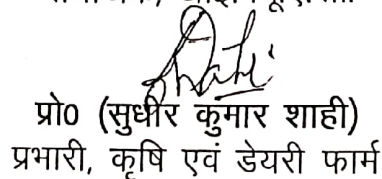 प्रो0 (सुधीर कुमार शाही)
प्रभारी, कृषि एवं डेयरी फार्म